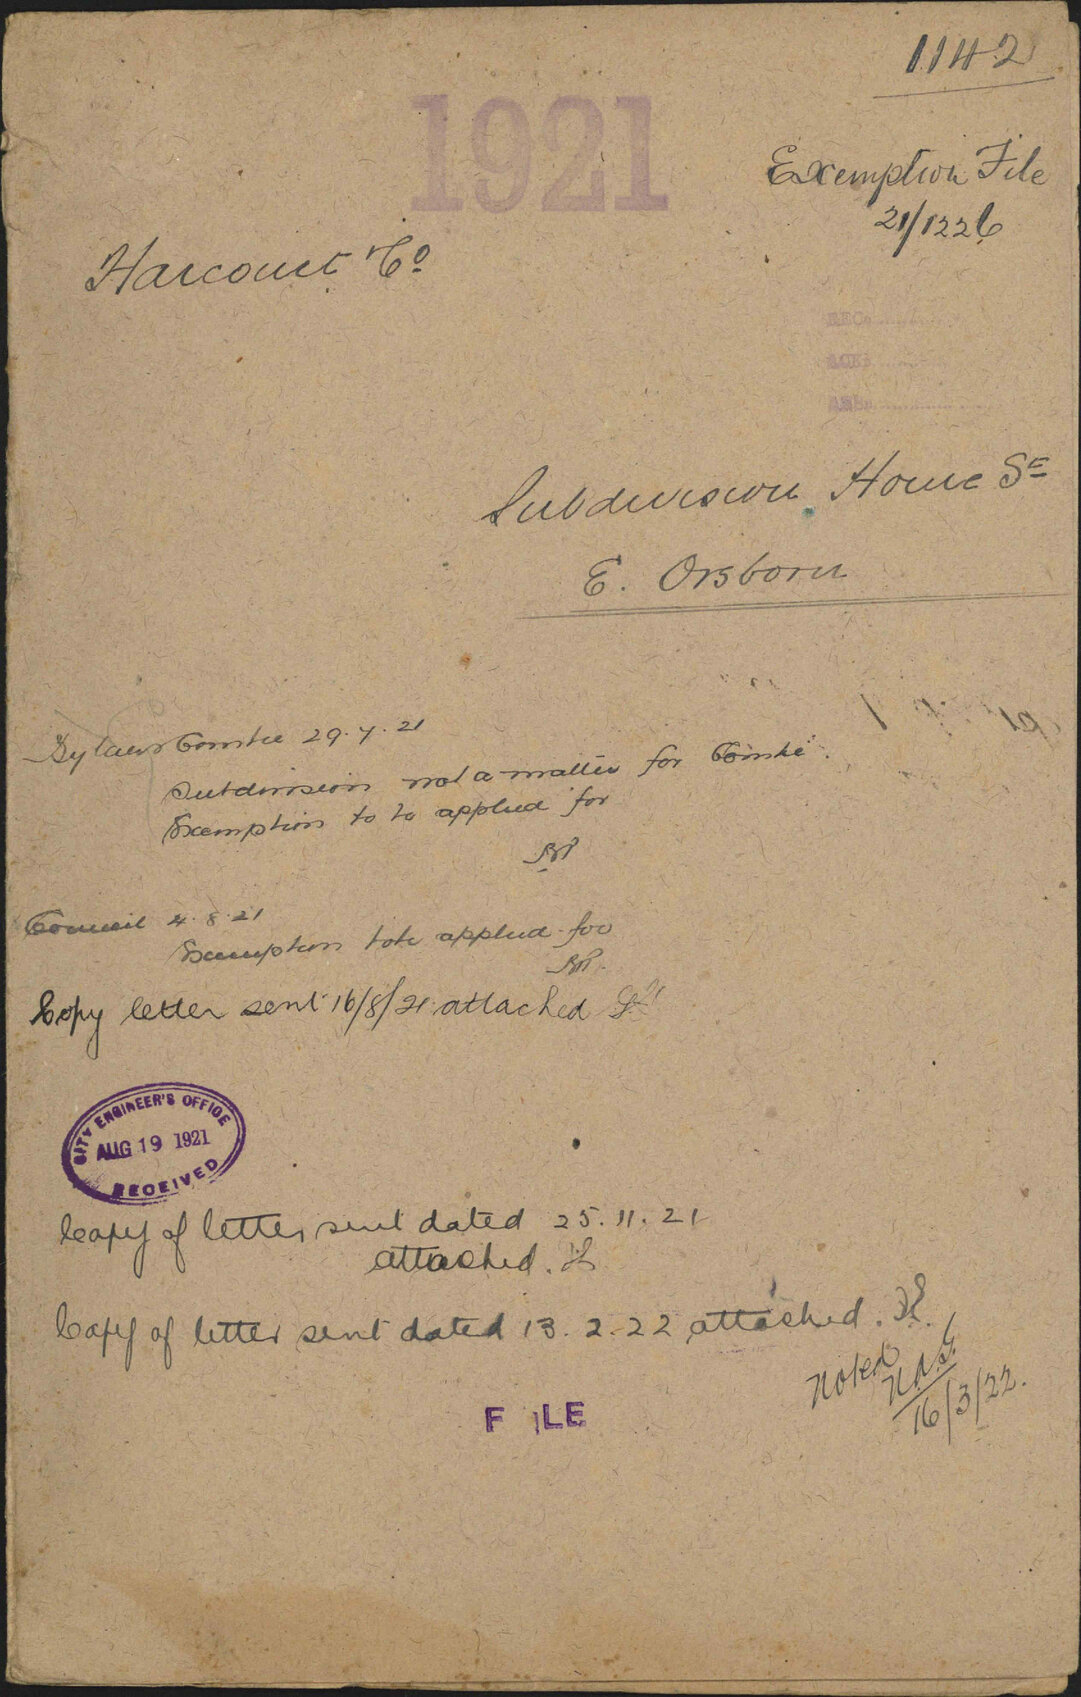 1142
1921
Exemption File
21/1226
Harcourt & Co
Subdivision Howe St
E. Orsborn
Bylaws Comtee 29.7.21
Subdivision not a matter for Comtee.
Exemption to be applied for
Council 4.8.21
Exemption to be applied for
Copy letter sent 16/8/21 attached
CITY ENGINEER'S OFFICE
AUG 19 1921
RECEIVED
Copy of letter sent dated 25.11.21
attached.
Copy of letter sent dated 13.2.22 attached.
Noted
16/3/22.
F ILE